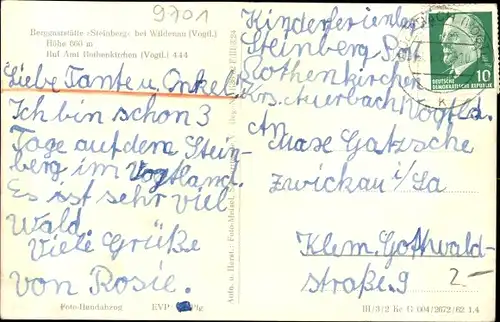 9701
Berggaststätte »Steinberg« bei Wildenau (Vogtl.)
Höhe 660 m
Ruf Amt Rothenkirchen (Vogtl.) 444
Liebe Tante u. Onkel
Ich bin schon 3
Tage auf dem Stein-
berg im Vogtland.
Es ist sehr viel
Wald.
Viele Grüße
von Rosie.
Foto-Handabzug
EVP:
Kinderferienlag
Steinberg Post
Rothenkirchen
Krs. Auerbach Vogtld.
An
Maxe Gatzsche
Zwickau i/Sa
Klem. Gottwald-
straße 9
2.-
III/3/2 Ke G 004/2672/62 1.4
10
DEUTSCHE
DEMOKRATISCHE REPUBLIK